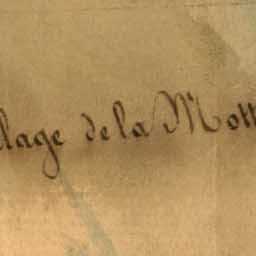 llage de la Mott